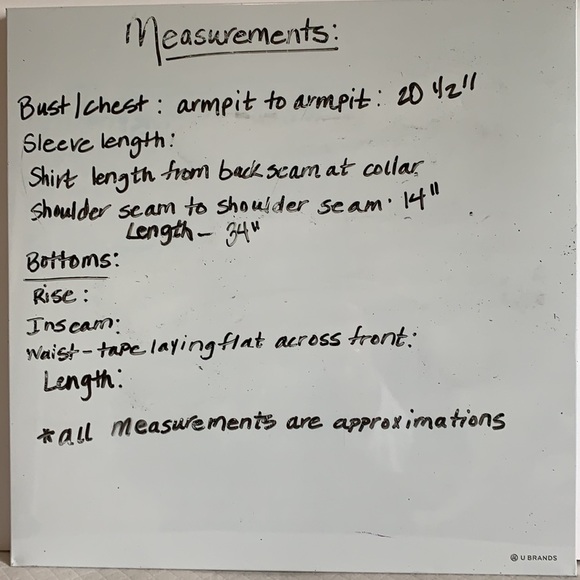 Measurements:
Bust/chest: armpit to armpit: 20 1/2"
Sleeve length:
Shirt length from back seam at collar
Shoulder seam to shoulder seam. 14"
Length- 34"
Bottoms:
Rise:
Inseam:
Waist-tape laying flat across front:
Length:
*all measurements are approximations
U BRANDS